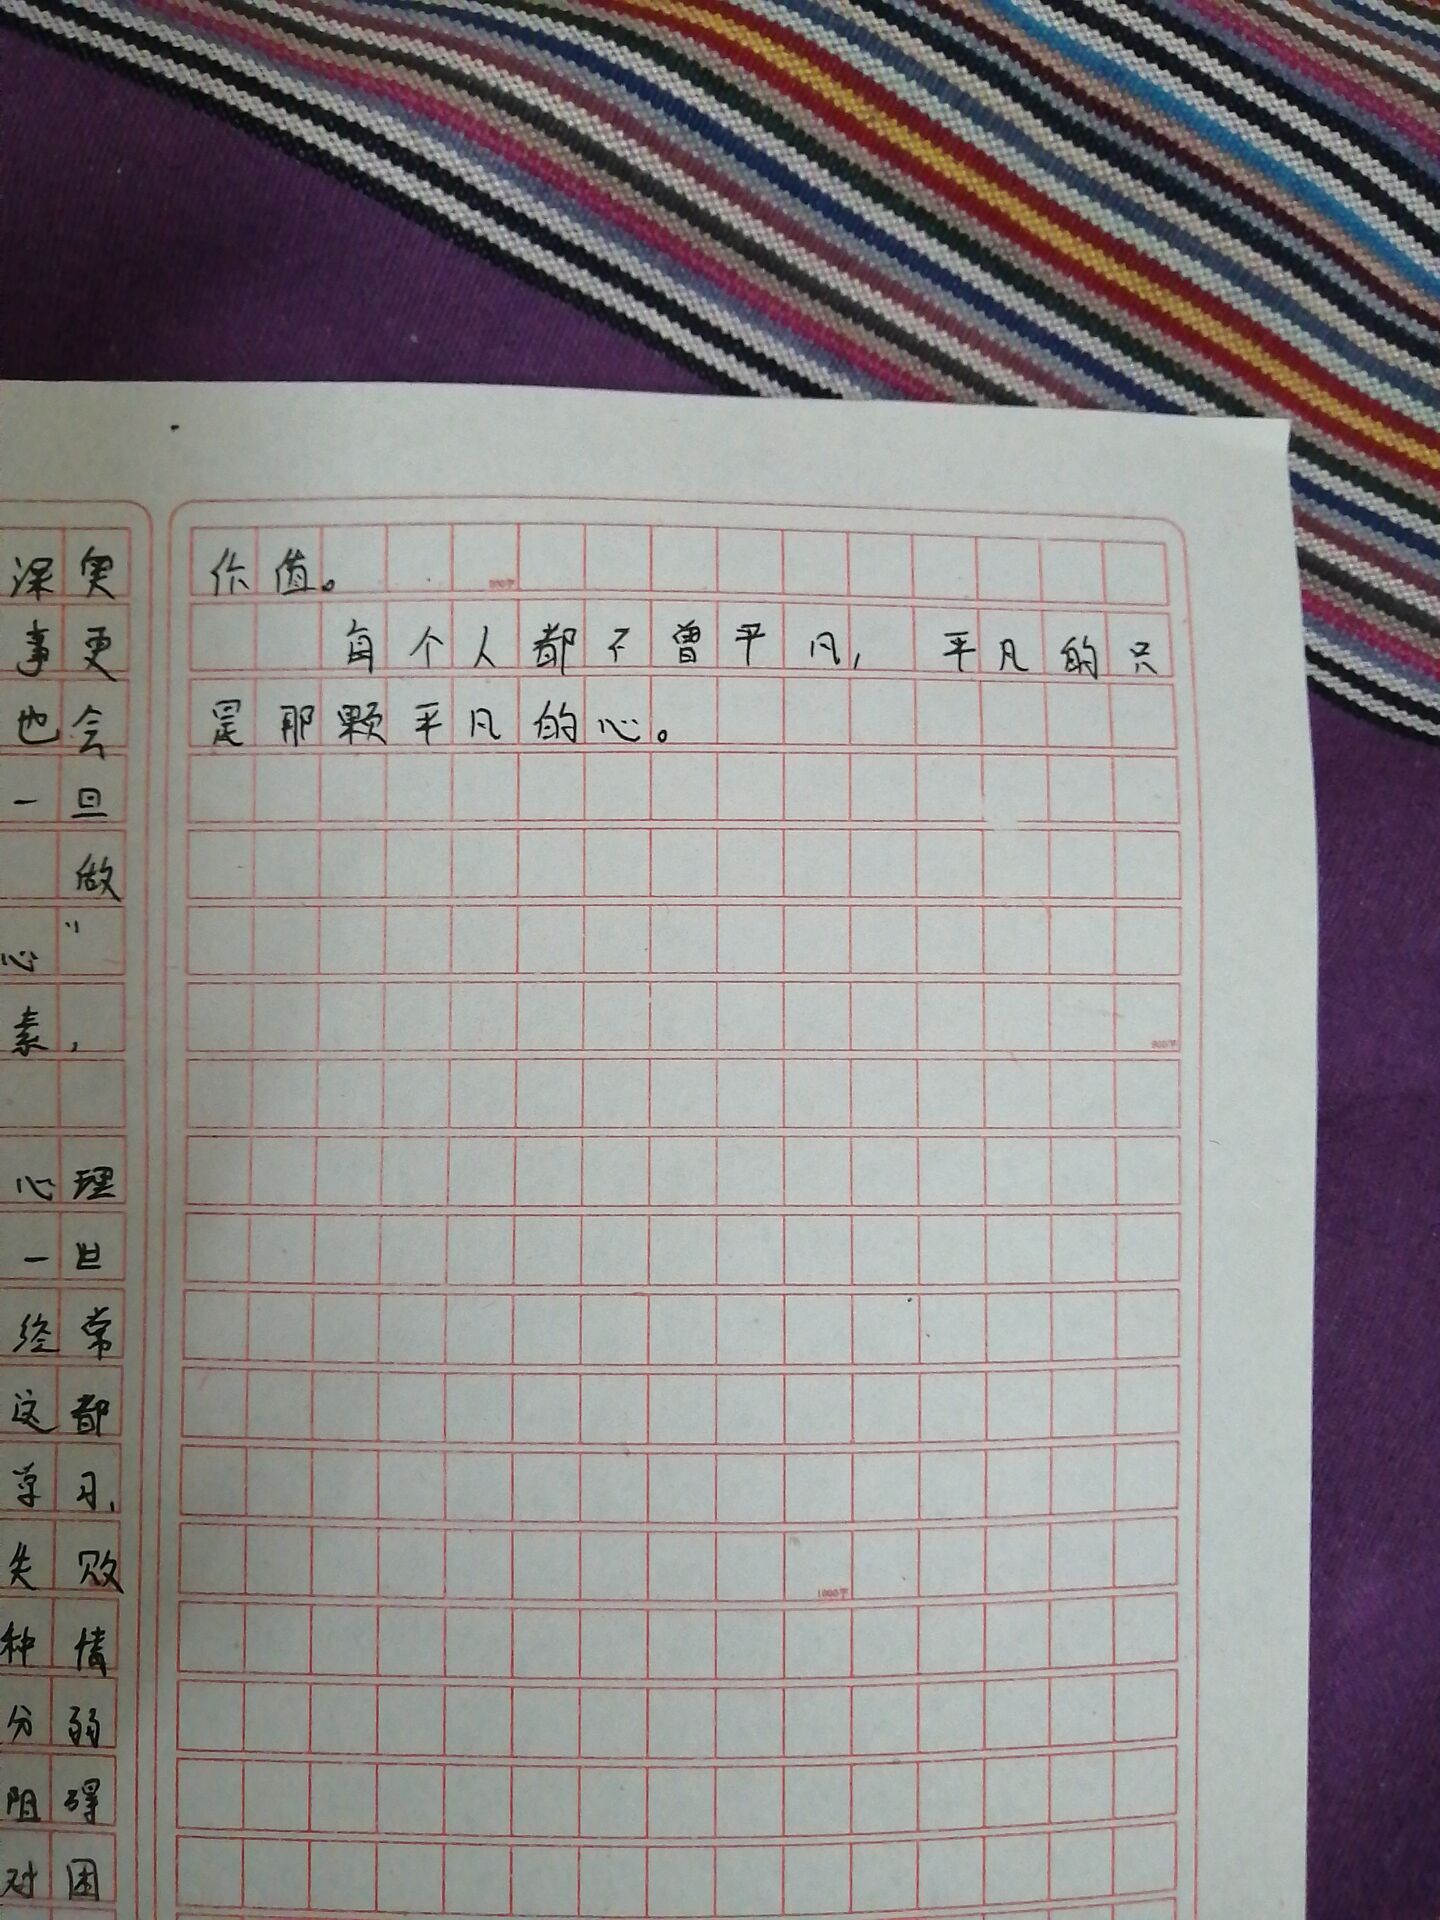 深奥
事更
也会
一旦
做
心"
素，
心理
一旦
经常
这都
学习，
失败
种情
分弱
阻碍
对困
价值。
每个人都不曾平凡，平凡的只
是那颗平凡的心。
900字
1000字